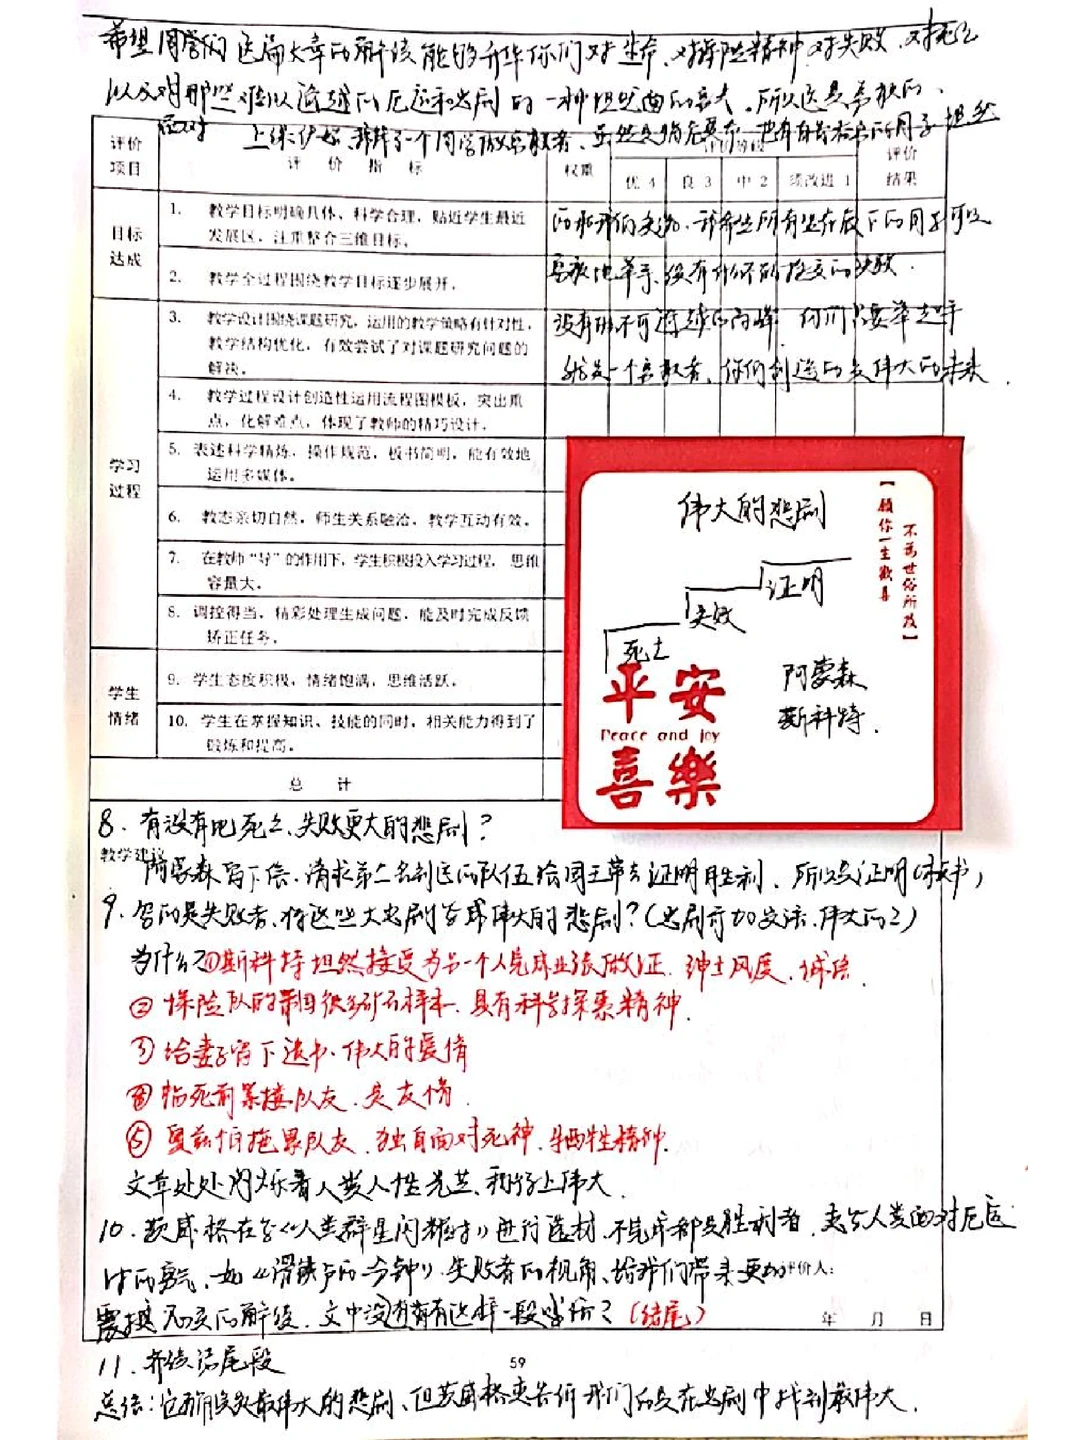 希望同学们这篇文章的解读能够升华你们对生命、对探险精神、对失败、对死亡
以及对那些难以逾越的厄运和悲剧的一种坦然面的意
应对
上课伊始,
坦然
评价项目
评 价 指 标
权重
评价等级
优 4
良 3
中 2
须改进 1
评价结果
目标达成
1. 教学目标明确具体、科学合理,贴近学生最近
发展区,注重整合三维目标。
2. 教学全过程围绕教学目标逐步展开。
学习过程
3. 教学设计围绕课题研究,运用的教学策略有针对性,
教学结构优化,有效尝试了对课题研究问题的
解决。
4. 教学过程设计创造性运用流程图模板,突出重
点,化解难点,体现了教师的精巧设计。
5. 表述科学精炼,操作规范,板书简明,能有效地
运用多媒体。
6. 教态亲切自然,师生关系融洽,教学互动有效。
7. 在教师“导”的作用下,学生积极投入学习过程,思维
容量大。
8. 调控得当,精彩处理生成问题,能及时完成反馈
矫正任务。
学生情绪
9. 学生态度积极,情绪饱满,思维活跃。
10. 学生在掌握知识、技能的同时,相关能力得到了
锻炼和提高。
总 计
我希望所有坐在底下的同学可以
勇敢地举手、没有什么不能接受的失败.
没有那不可逾越的高峰. 你们只要举起手
就是一个勇敢者、你们创造的是伟大的未来.
伟大的悲剧
证明
失败
死亡
阿蒙森
斯科特.
【愿你一生欢喜
不为世俗所扰】
平安
Peace and joy
喜樂
8. 有没有比死亡、失败更大的悲剧?
教学建议
阿蒙森留下信、请求第二名到达的队伍给国王带去证明胜利、所以是证明(板书)
9. 写的是失败者、将这些大悲剧写成伟大的悲剧?(悲剧前加定语、伟大的?)
为什么?①斯科特坦然接受为另一个人完成业绩做证. 绅士风度、诚信
② 探险队的带回很多矿石样本、具有科学探索精神.
③ 给妻子留下遗书、伟大的爱情
④ 临死前等待队友、是友情.
⑤ 奥兹怕拖累队友、独自面对死神、牺牲精神.
文章处处闪烁着人类人性光芒、称得上伟大.
10. 茨威格在写《人类群星闪耀时》进行选材、不光都是胜利者、
时的勇气、如《滑铁卢的一分钟》、失败者的视角、给我们带来更加
震撼 的解读. 文中没有有这样一段评价?(结尾)
评价人:
年 月 日
11. 齐读结尾段
59
总结: